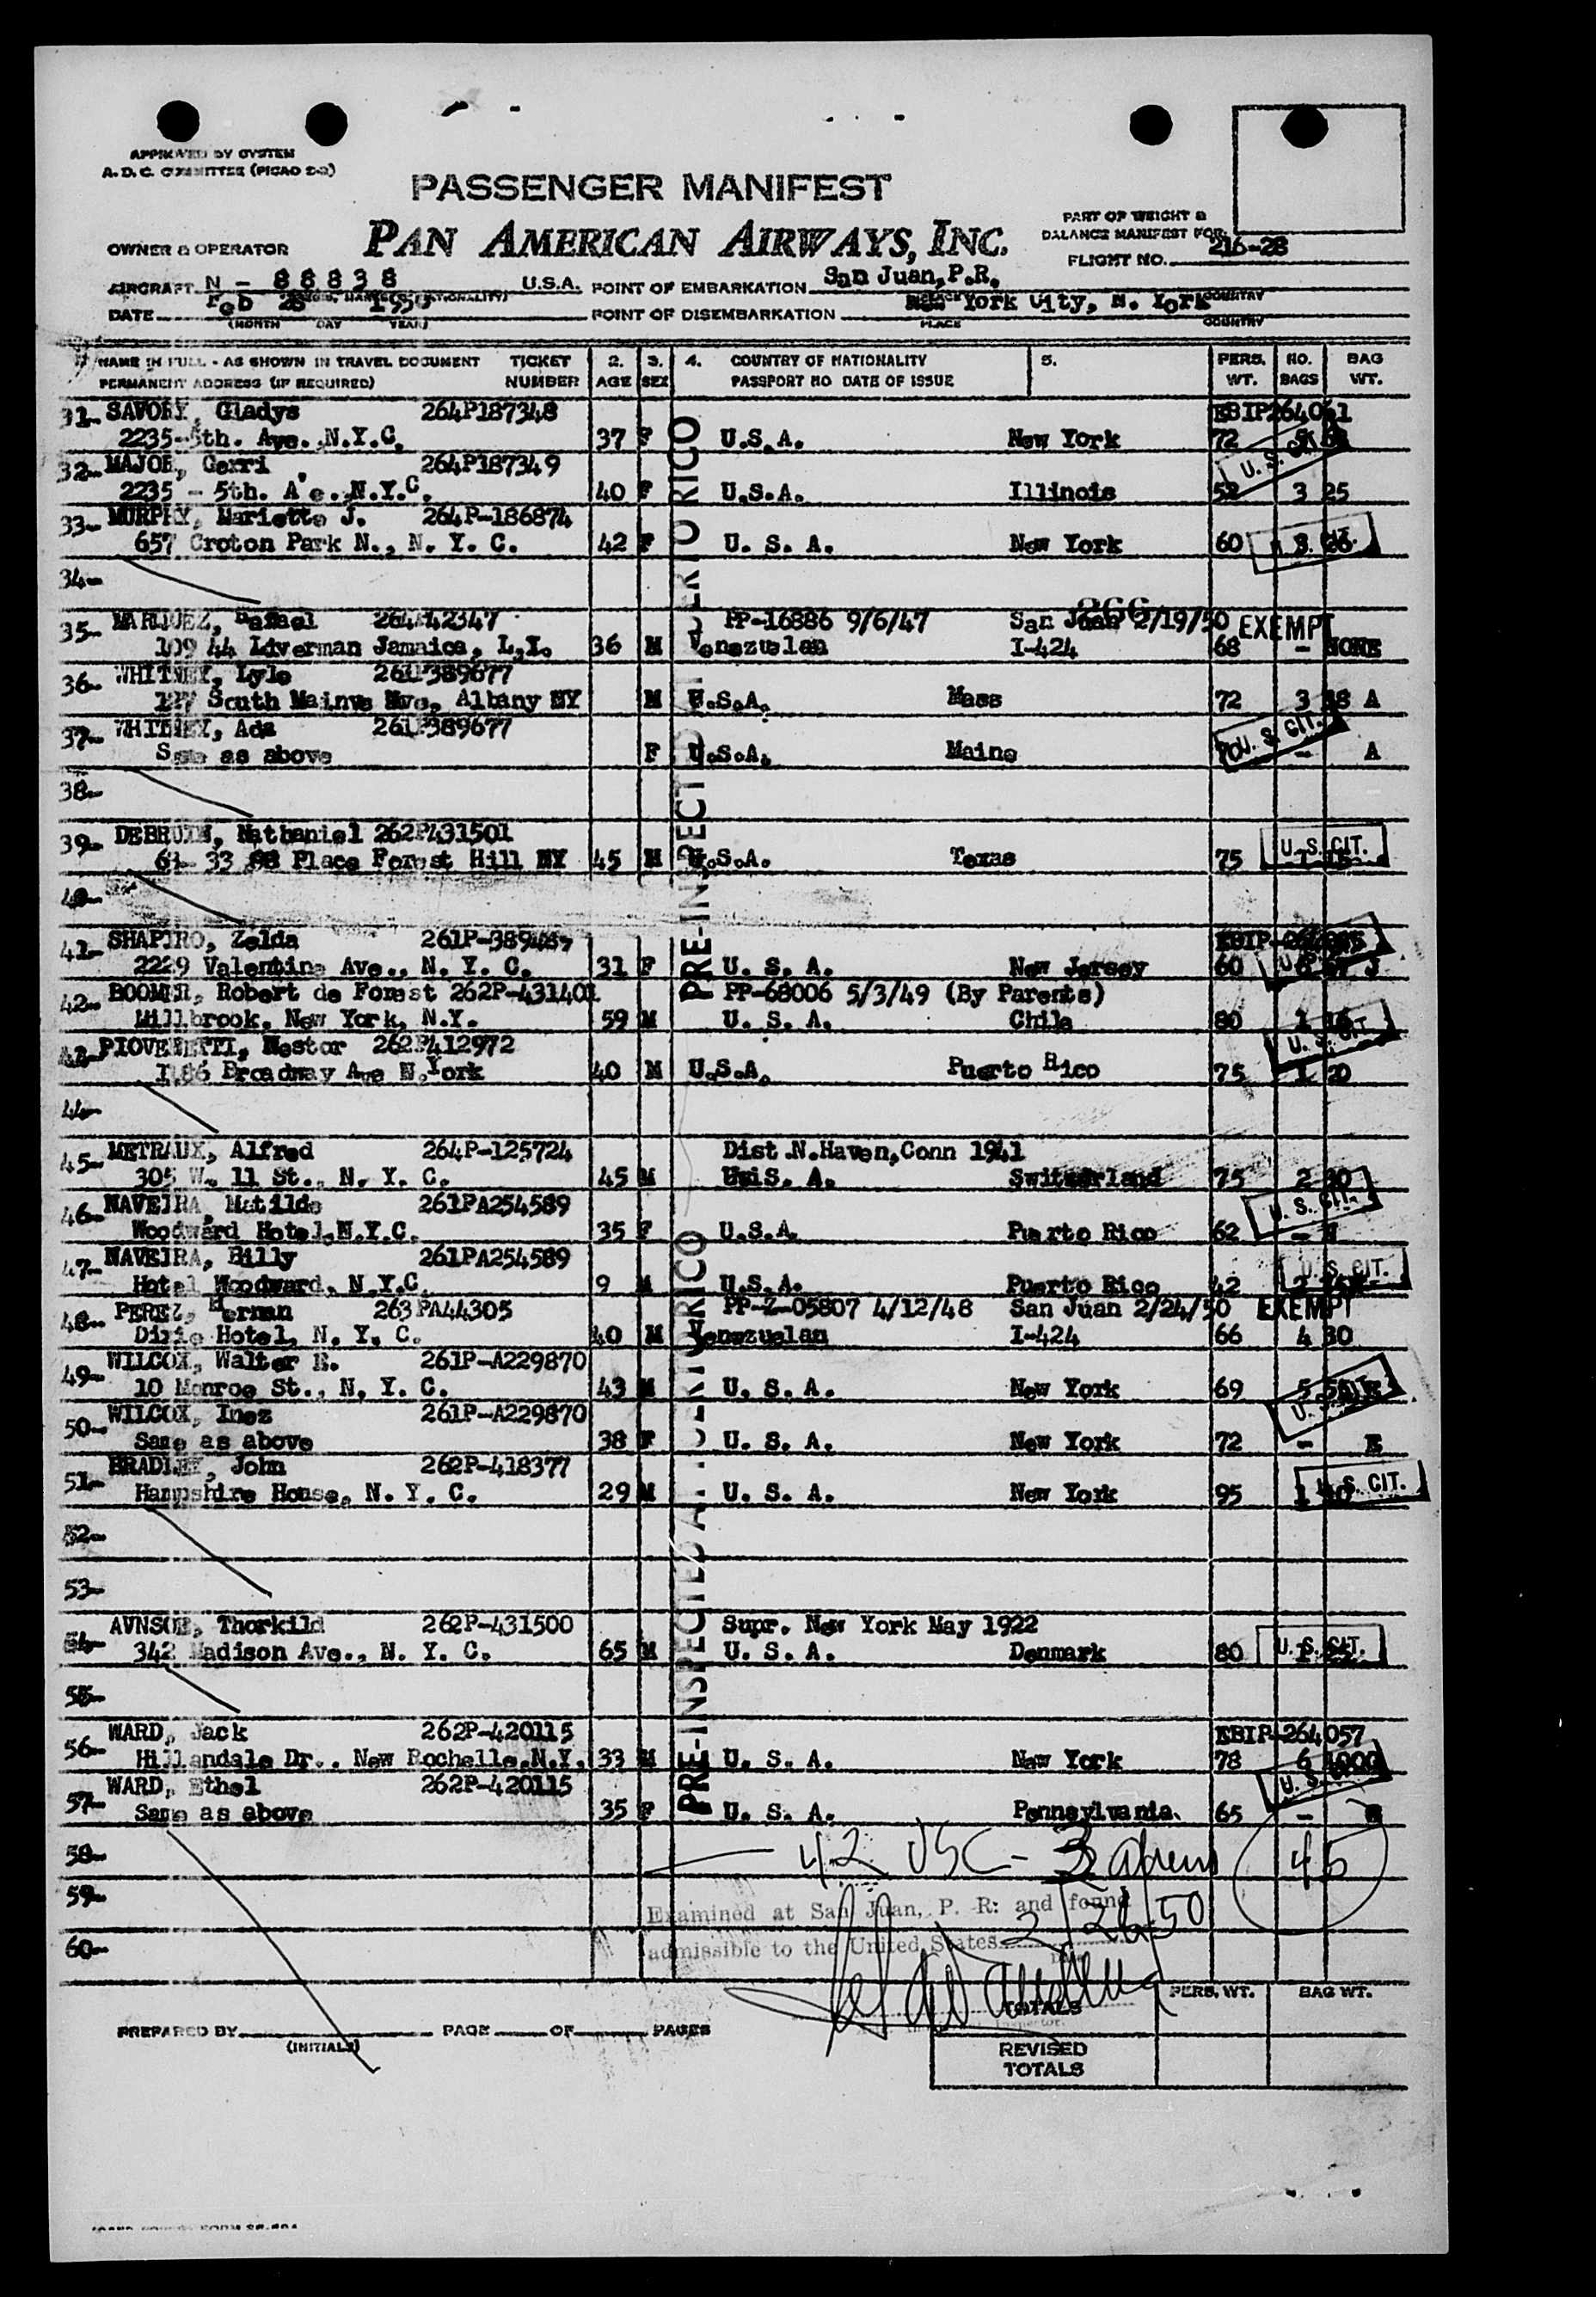 APPROVED BY SYSTEM
A. D. C. COMMITTEE (PICAO
PASSENGER MANIFEST
PAN AMERICAN AIRWAYS, INC.
PART OF WEIGHT &
BALANCE MANIFEST FOR
OWNER & OPERATOR
FLIGHT NO. 216-28
AIRCRAFT N - 88838 U.S.A. POINT OF EMBARKATION San Juan, P.R.
DATE Feb 28 1950 POINT OF DISEMBARKATION New York City, N. York
(MONTH DAY YEAR) PLACE COUNTRY
NAME IN FULL - AS SHOWN IN TRAVEL DOCUMENT TICKET 2. 3. 4. COUNTRY OF NATIONALITY 5. PERS. NO. BAG
PERMANENT ADDRESS (IF REQUIRED) NUMBER AGE SEX PASSPORT NO DATE OF ISSUE WT. BAGS WT.
31- SAVORY, Gladys 264P187348 EBIP264061
2235-5th. Ave. N.Y.C. 37 F U.S.A. New York 72
32- MAJOR, Gerri 264P187349 U. S. CIT.
2235 - 5th. A've. N.Y.C. 40 F U.S.A. Illinois 52 3 25
33- MURPHY, Marietta J. 264P-186874
657 Croton Park N., N. Y. C. 42 F U. S. A. New York 60
34-
35- MARQUEZ, Rafael PP-16886 9/6/47 San Juan 2/19/50 EXEMPT
109 44 Liverman Jamaica, L.I. 36 M Venezuelan I-424 68 - NONE
36- WHITNEY, Lyle 261P389677
South Mainve Ave, Albany NY M U.S.A. Mass 72 3 A
37- WHITNEY, Ada 261P389677 U. S. CIT.
Same as above F U.S.A. Maine - A
38-
39- DEBRUIN, Nathaniel 262P431501
33 88 Place Forest Hill NY 45 M U.S.A. Texas 75 U. S. CIT.
40-
41- SHAPIRO, Zelda
2229 Valentine Ave., N. Y. C. 31 F U. S. A. New Jersey 60
42- BOOMER, Robert de Forest 262P-431401 PP-68006 5/3/49 (By Parents)
Millbrook, New York, N.Y. 59 M U. S. A. Chile 80 1
43- PIOVENETTI, Nestor 262P412972 U. S. CIT
1186 Broadway Ave N.York 40 M U.S.A. Puerto Rico 75 1 20
44-
45- METRAUX, Alfred 264P-125724 Dist .N.Haven,Conn 1941
305 W. 11 St., N. Y. C. 45 M U.S. A. Switzerland 75 2 30
46- NAVEIRA, Matilde 261PA254589 U. S. CIT.
Woodward Hotel,N.Y.C. 35 F U.S.A. Puerto Rico 62 -
47- NAVEIRA, Billy 261PA254589 U. S. CIT.
Hotel Woodward, N.Y.C. 9 M U.S.A. Puerto Rico 42
48- PEREZ, Hernan 263PA44305 PP-Z-05807 4/12/48 San Juan 2/24/50 EXEMPT
Dixie Hotel, N. Y. C. 40 M Venezuelan I-424 66 4 30
49- WILCOX, Walter E. 261P-A229870
10 Monroe St., N. Y. C. 43 M U. S. A. New York 69 5
50- WILCOX, Inez 261P-A229870
Same as above 38 F U. S. A. New York 72 - E
51- BRADLEY, John 262P-418377
Hampshire House, N. Y. C. 29 M U. S. A. New York 95 1 U. S. CIT.
52-
53-
54- AVNSOE, Thorkild 262P-431500 Supr. New York May 1922
342 Madison Ave., N. Y. C. 65 M U. S. A. Denmark 80 U. S. CIT.
55-
56- WARD, Jack 262P-420115 EBIP-264057
Hillandale Dr., New Rochelle,N.Y. 33 M U. S. A. New York 78 6
57- WARD, Ethel 262P-420115
Same as above 35 F U. S. A. Pennsylvania 65 -
PRE-INSPECTED AT PUERTO RICO
PRE-INSPECTED AT PUERTO RICO
58- 42 USC - 3 aliens 45
59- Examined at San Juan, P. R. and found
60- admissible to the United States 2/28/50
PERS. WT. BAG WT.
TOTALS
Inspector.
PREPARED BY PAGE OF PAGES
(INITIALS)
REVISED
TOTALS